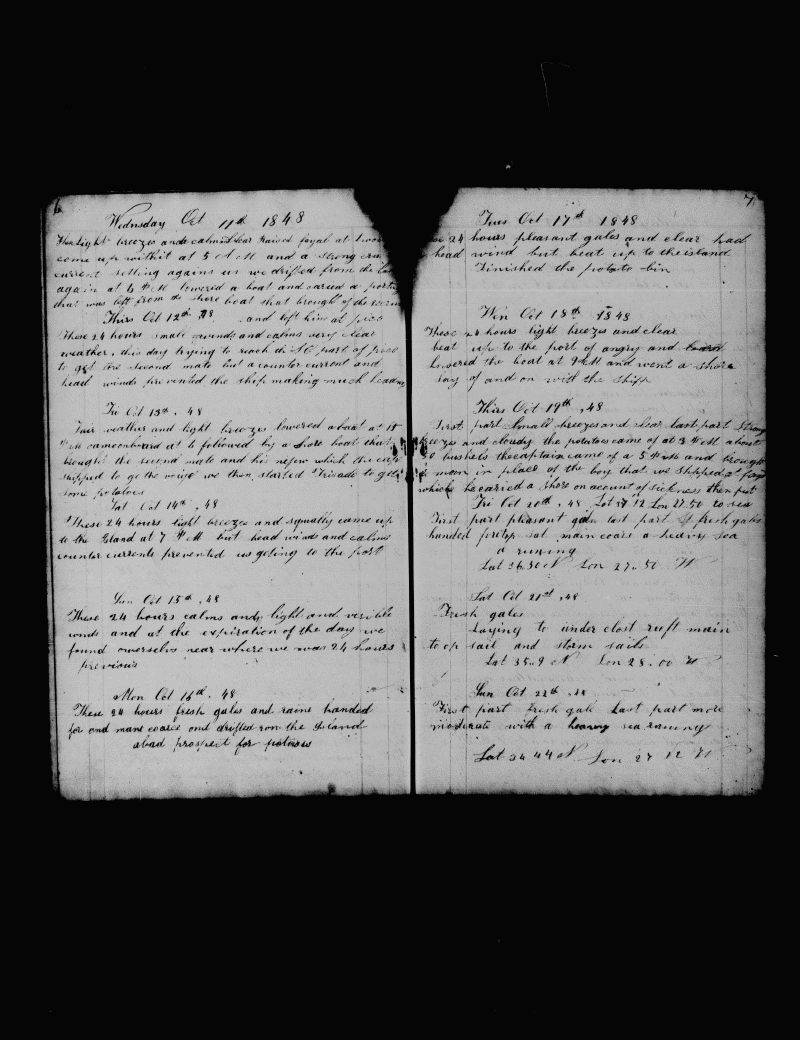 6
Wednsday Oct 11th 1848
light breezes and calms clear raised fayal at
come up withit at 5 A M and a strong
current setting agains us we drifted from the
again at 4 P M lowered a boat and caried a
that was left from the shore boat that brought of the
Thirs Oct 12th 48 and left him at pico
These 24 hours small winds and calms very clear
weather, this day trying to reach the part of pico
to get the second mate but a counter current and
head winds prevented the ship making much
Fri Oct 13th, 48
Fair weather and light breezes lowered a boat at 11
P M came onboard at 6 followed by a shore boat that
brought the second mate and his nefew which the cap
shipped to go the voige we then started to get
some potatoes
Sat Oct 14th, 48
These 24 hours light breezes and squally came up
to the Island at 7 P M but head winds and calms
counter currents prevented us geting to the port
Sun Oct 15th, 48
These 24 hours calms and light and verible
winds and at the expiration of the day we
found owerselvs near where we was 24 hours
previous
Mon Oct 16th, 48
These 24 hours fresh gales and rains handed
for and mane coarse and drifted ron the Island
abad prospect for potatoes
7
Tues Oct 17th 1848
24 hours pleasant gales and clear had
head wind but beat up to the island
Finished the potato bin
Wen Oct 18th 1848
These 24 hours light breezes and clear
beat up to the port of angry and
lowered the boat at 9 A M and went a shore
lay of and on with the ship
Thirs Oct 19th, 48
First part small breezes and clear last part strong
and cloudy the potatoes came of at 3 P M about
50 bushels the captain came of a 5 P M and brought
a man in place of the boy that we shipped at
which he carried a shore on acount of sickness then put
Fri Oct 20th, 48 Lat 37 12 Lon 27.50 to sea
First part pleasant gales last part fresh gales
handed foretop sat main coarse a heavy sea
a runing
Lat 36.30 N Lon 27.50 W
Sat Oct 21st, 48
Fresh gales
Laying to under clost reeft main
top sail and storm sails
Lat 35.9 N Lon 28.00 W
Sun Oct 22th, 48
First part fresh gale last part more
moderate with a heavy sea runing
Lat 34 44 N Lon 27 12 W